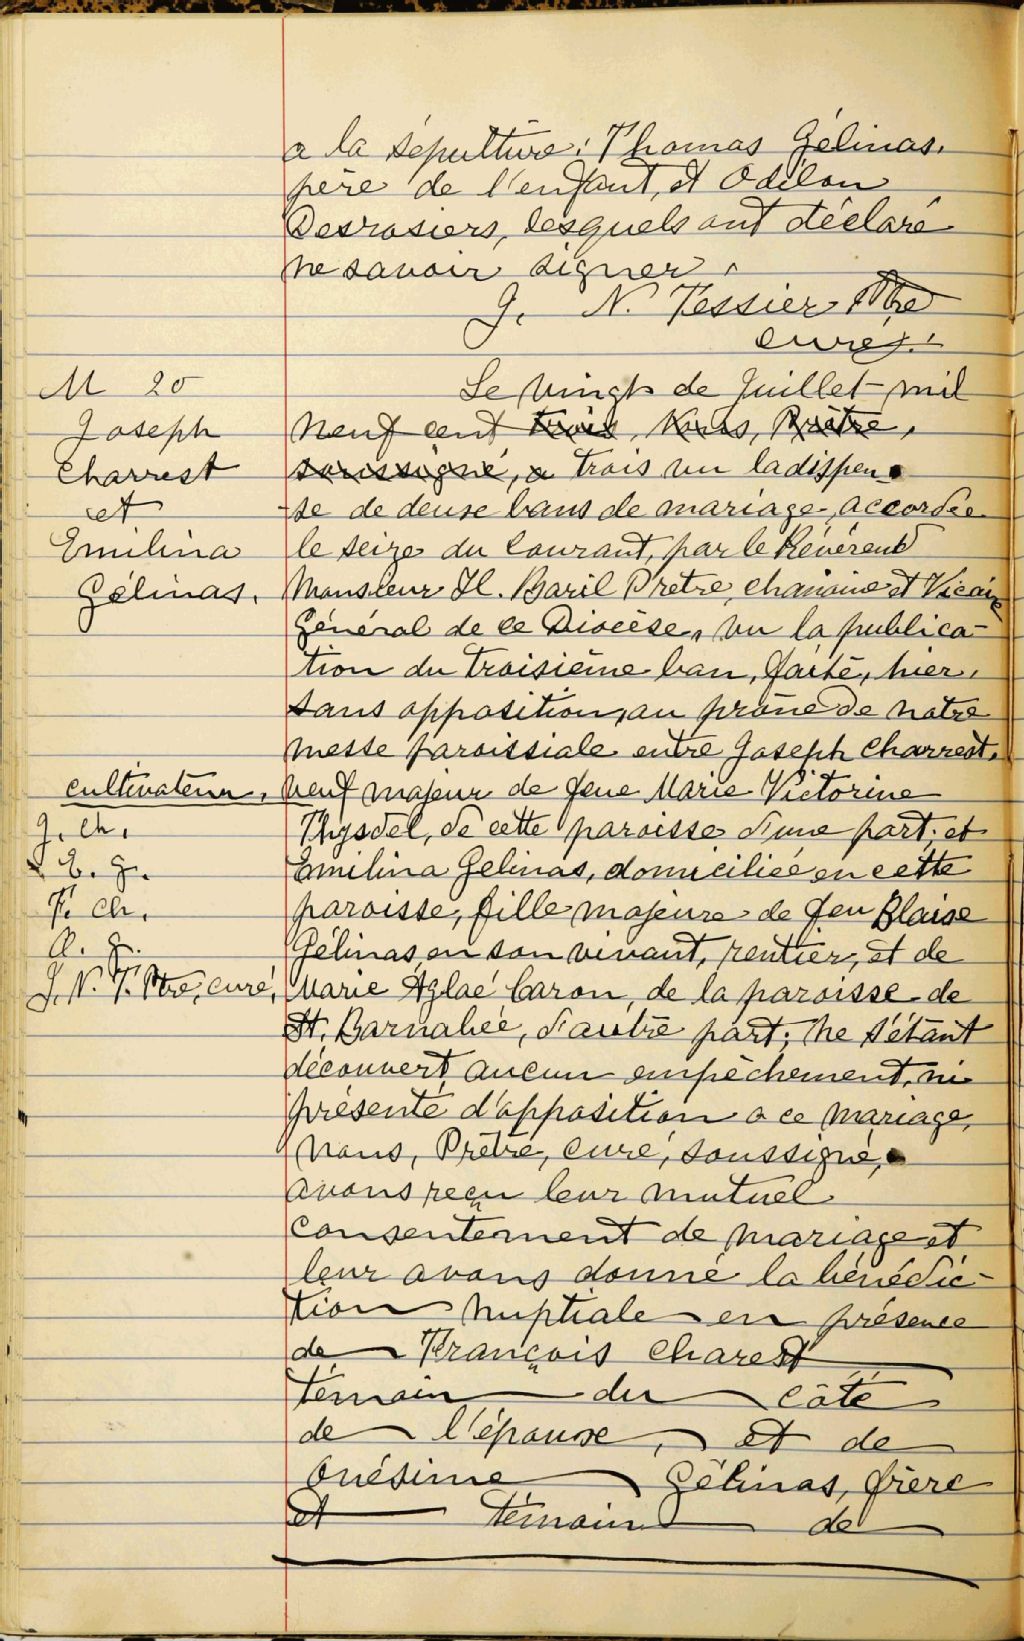 a la sépulture: Thomas Gélinas,
père de l'enfant, et Odilon
Desrosiers, lesquels ont déclaré
ne savoir signer.
J. N. Tessier Ptre
curé.
M 20
Joseph
Charrest
et
Emilina
Gélinas.
Le vingt de Juillet mil
neuf cent trois, Nous, Prêtre,
soussigné, a trois vu la dispen
-se de deux bans de mariage, accordée
le seize du courant, par le Révérend
Monsieur H. Baril Prêtre, chanoine et Vicaire
Général de ce Diocèse, vu la publica-
tion du troisième ban, faite, hier,
sans opposition, au prône de notre
messe paroissiale entre Joseph Charrest,
cultivateur, veuf majeur de feue Marie Victorine
J. Ch.
E. g.
F. Ch.
O. g.
J. N. T. Ptre, curé,
de cette paroisse d'une part; et
Emilina Gelinas, domiciliée en cette
paroisse, fille majeure de feu Blaise
Gélinas en son vivant, rentier, et de
Marie Aglaé Caron, de la paroisse de
St. Barnabée, d'autre part; ne s'étant
découvert aucun empêchement, ni
présenté d'opposition a ce mariage,
Nous, Prêtre, curé, soussigné,
avons reçu leur mutuel
consentement de mariage et
leur avons donné la bénédic-
tion nuptiale en présence
de François Charest
témoin du côté
de l'épouse, et de
Onésime Gélinas, frère
et témoin de